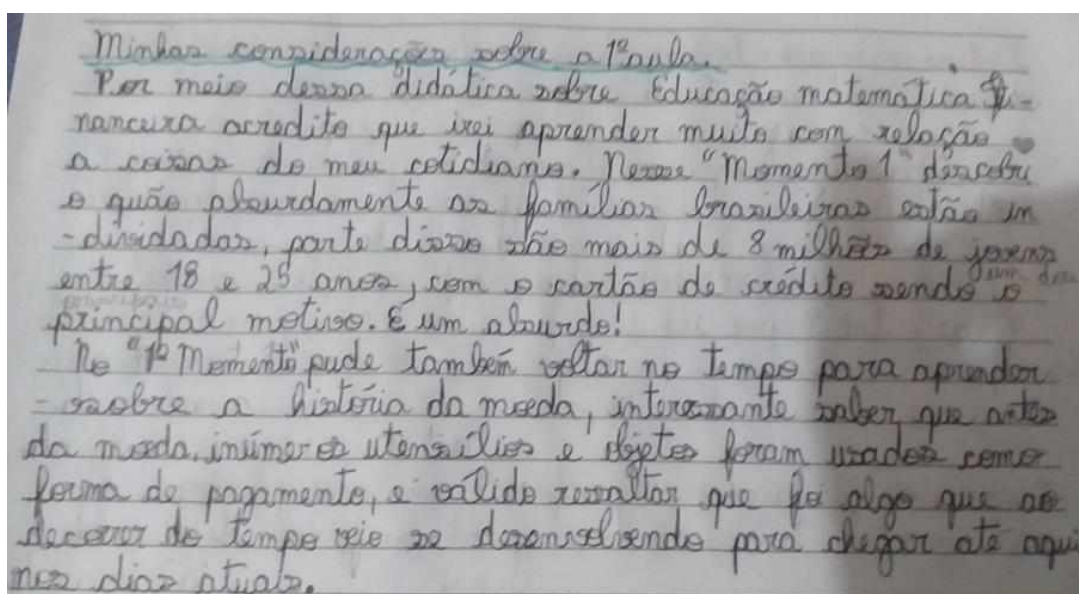 Minhas considerações sobre a 1ª aula.
Por meio dessa didática sobre Educação matematica Fi-
nanceira acredito que irei aprender muito com relação
a coisas do meu cotidiano. Nesse "Momento 1" descobri
o quão absurdamente as famílias brasileiras estão in
-dividadas, parte disso são mais de 8 milhões de jovens
entre 18 e 25 anos, com o cartão de crédito sendo o
principal motivo. É um absurdo!
No "1º Momento" pude também voltar no tempo para aprender
- sobre a história da moeda, interessante saber que antes
da moeda, inúmeros utensílios e objetos foram usados como
forma de pagamento, e válido ressaltar que foi algo que ao
decorrer do tempo veio se desenvolvendo para chegar até aqui
nos dias atuais.